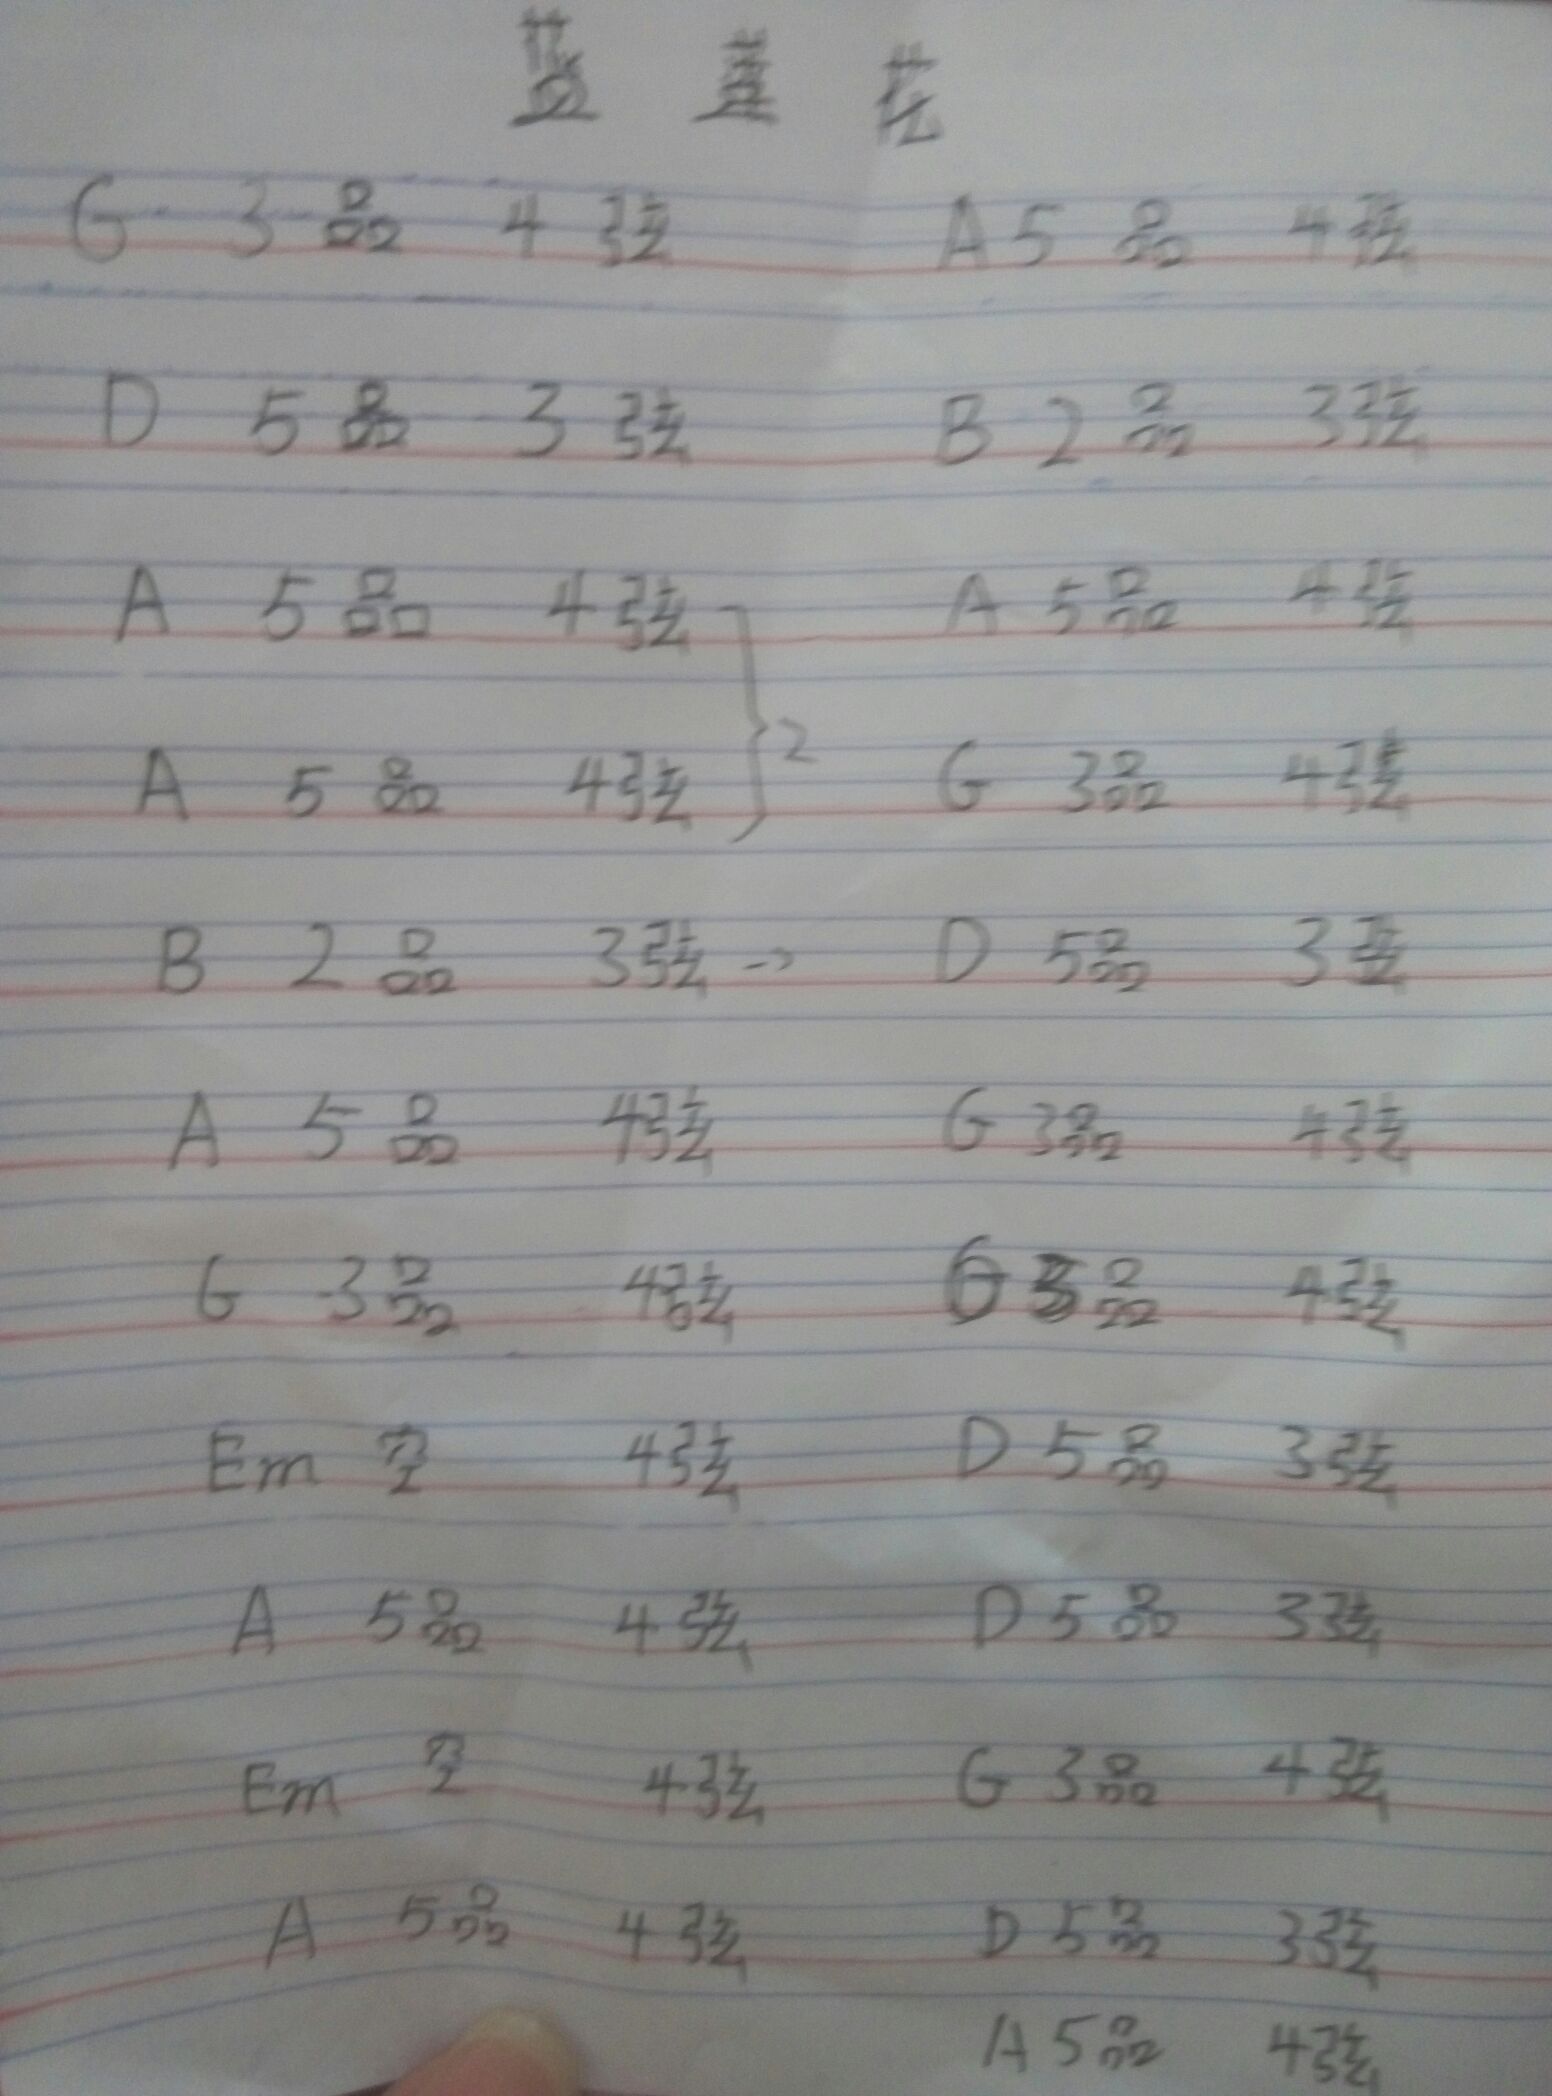 蓝莲花
G 3品 4弦 A 5品 4弦
D 5品 3弦 B 2品 3弦
A 5品 4弦 A 5品 4弦
} 2
A 5品 4弦 G 3品 4弦
B 2品 3弦 → D 5品 3弦
A 5品 4弦 G 3品 4弦
G 3品 4弦 G 3品 4弦
Em 空 4弦 D 5品 3弦
A 5品 4弦 D 5品 3弦
Em 空 4弦 G 3品 4弦
A 5品 4弦 D 5品 3弦
A 5品 4弦